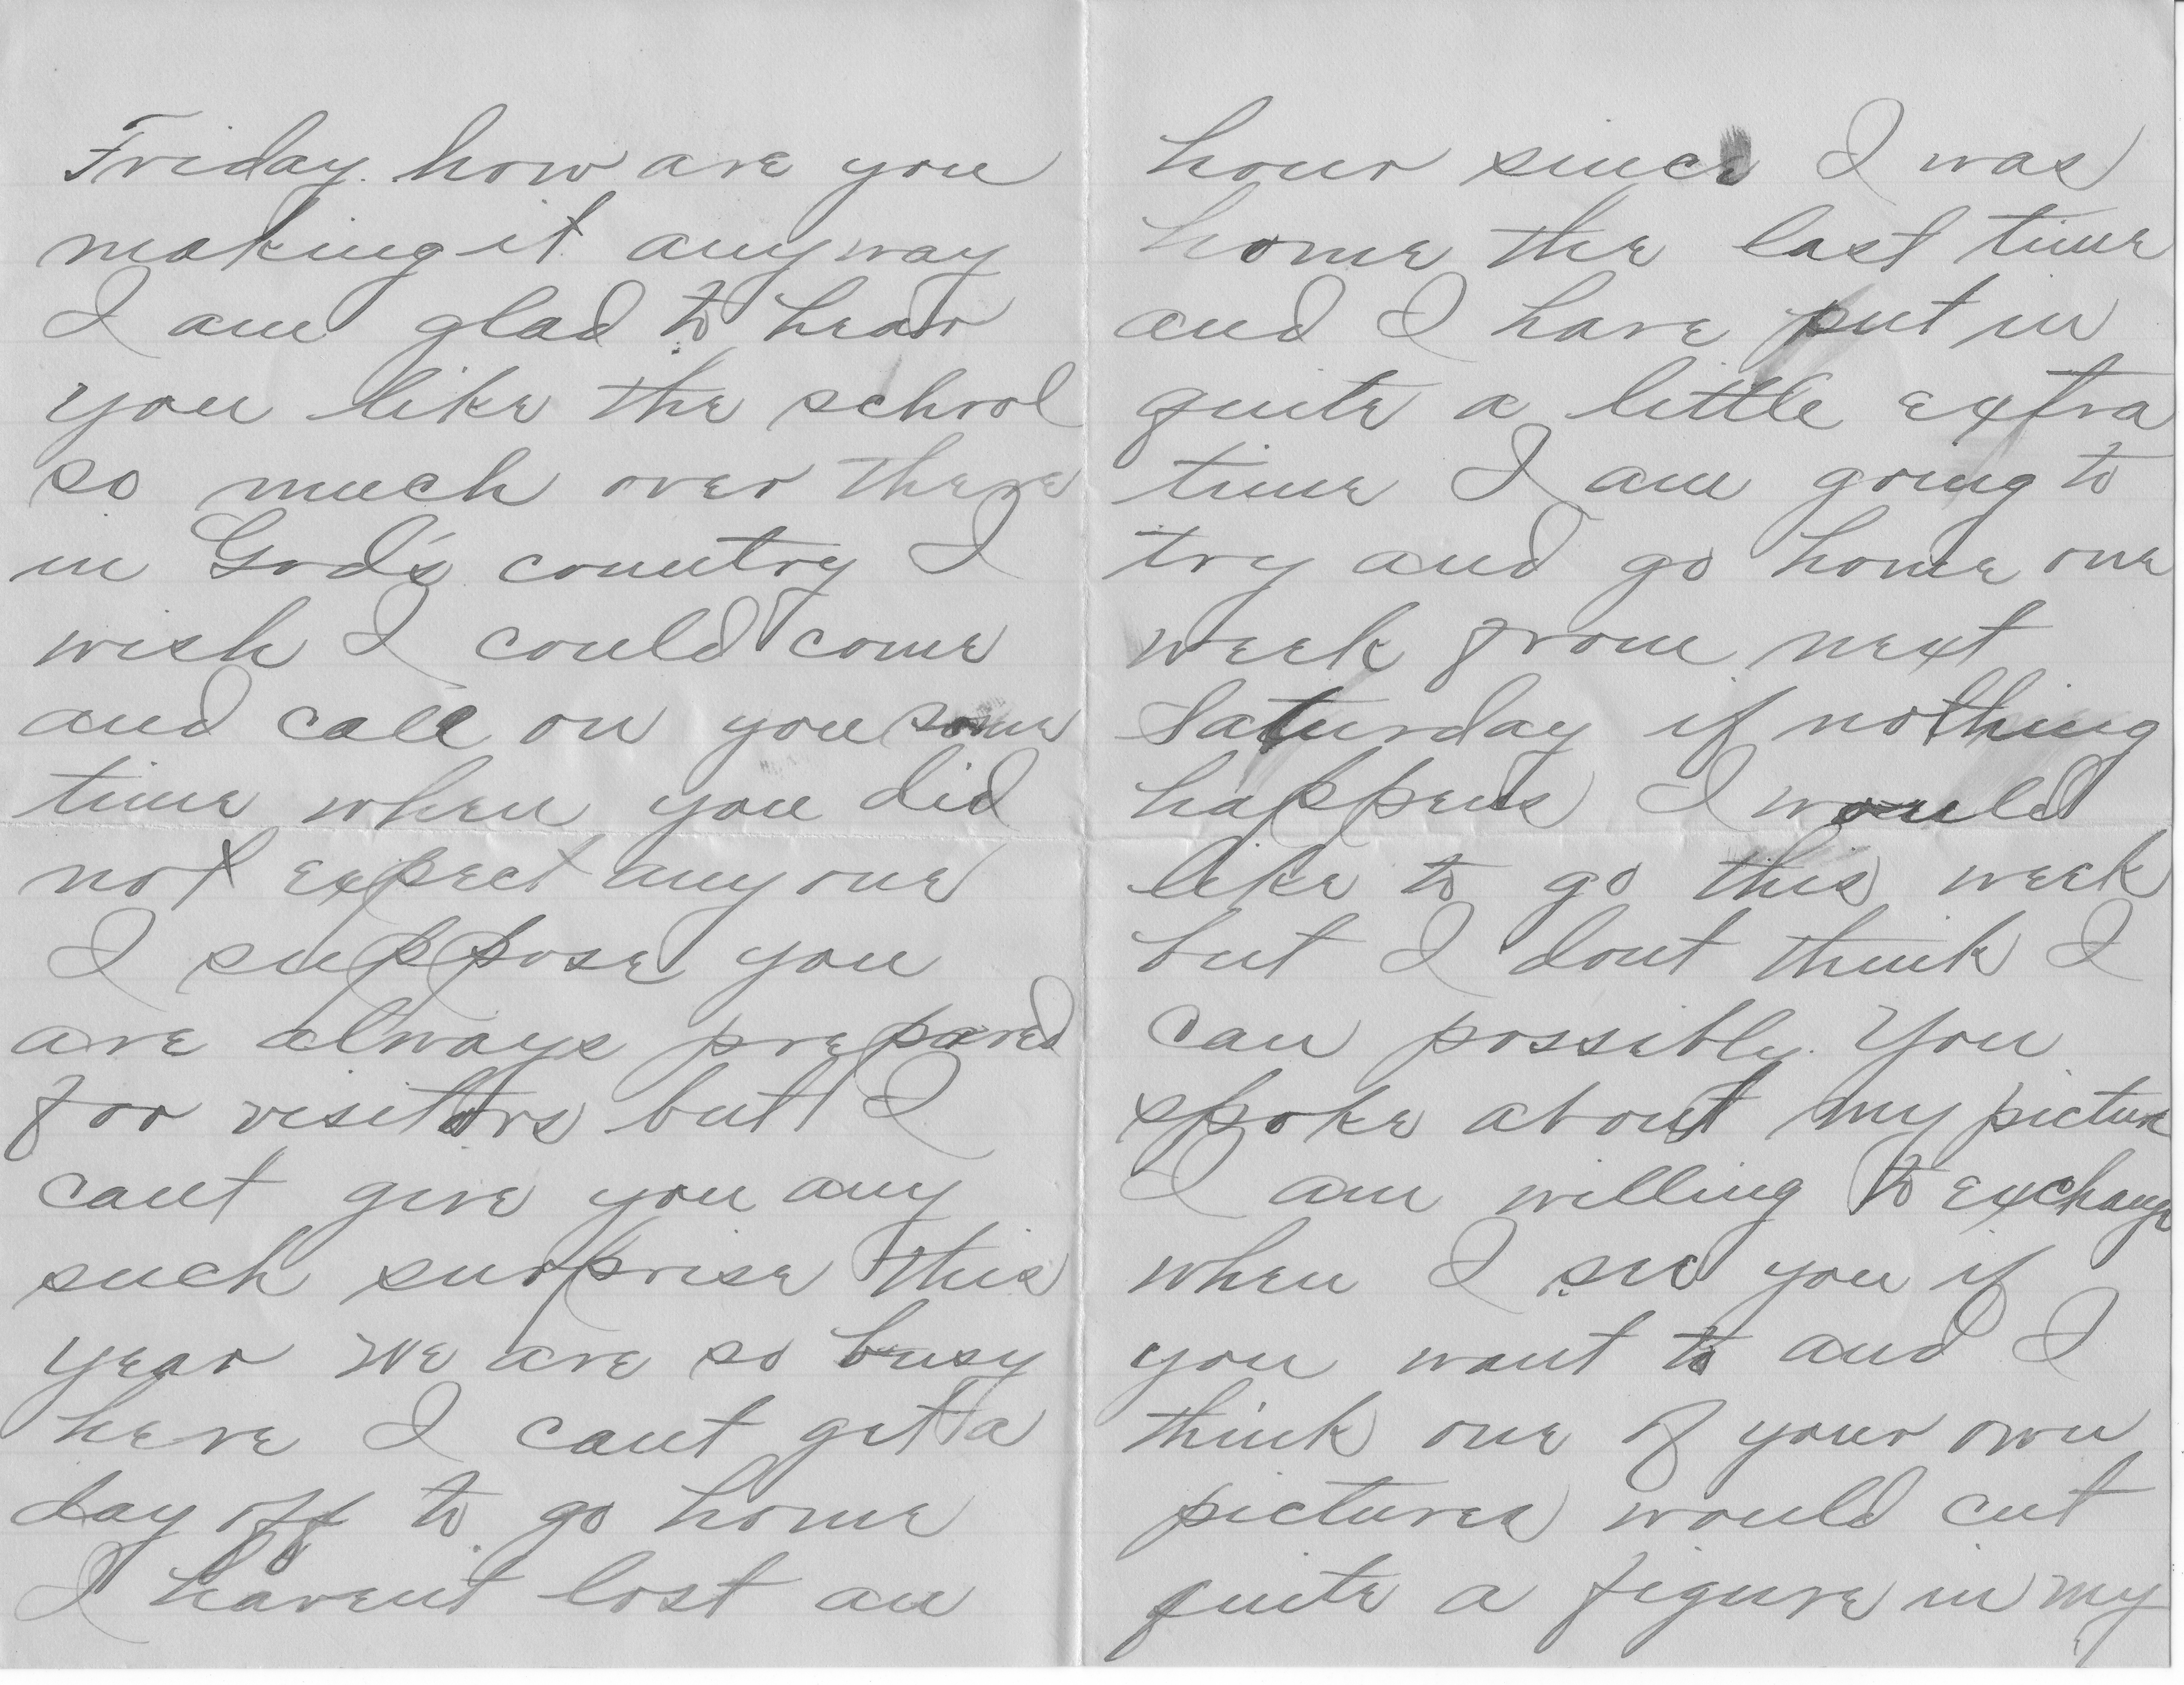 Friday. how are you
making it anyway
I am glad to hear
you like the school
so much over there
in God's country I
wish I could come
and call on you some
time when you did
not expect anyone
I suppose you
are always prepared
for visitors but I
cant give you any
such surprise this
year we are so busy
here I cant get a
day off to go home
I havent lost an
hour since I was
home the last time
and I have put in
quite a little extra
time I am going to
try and go home one
week from next
Saturday if nothing
happens I would
like to go this week
but I dont think I
can possibly. You
spoke about my picture
I am willing to exchange
when I see you if
you want to and I
think one of your own
pictures would cut
quite a figure in my